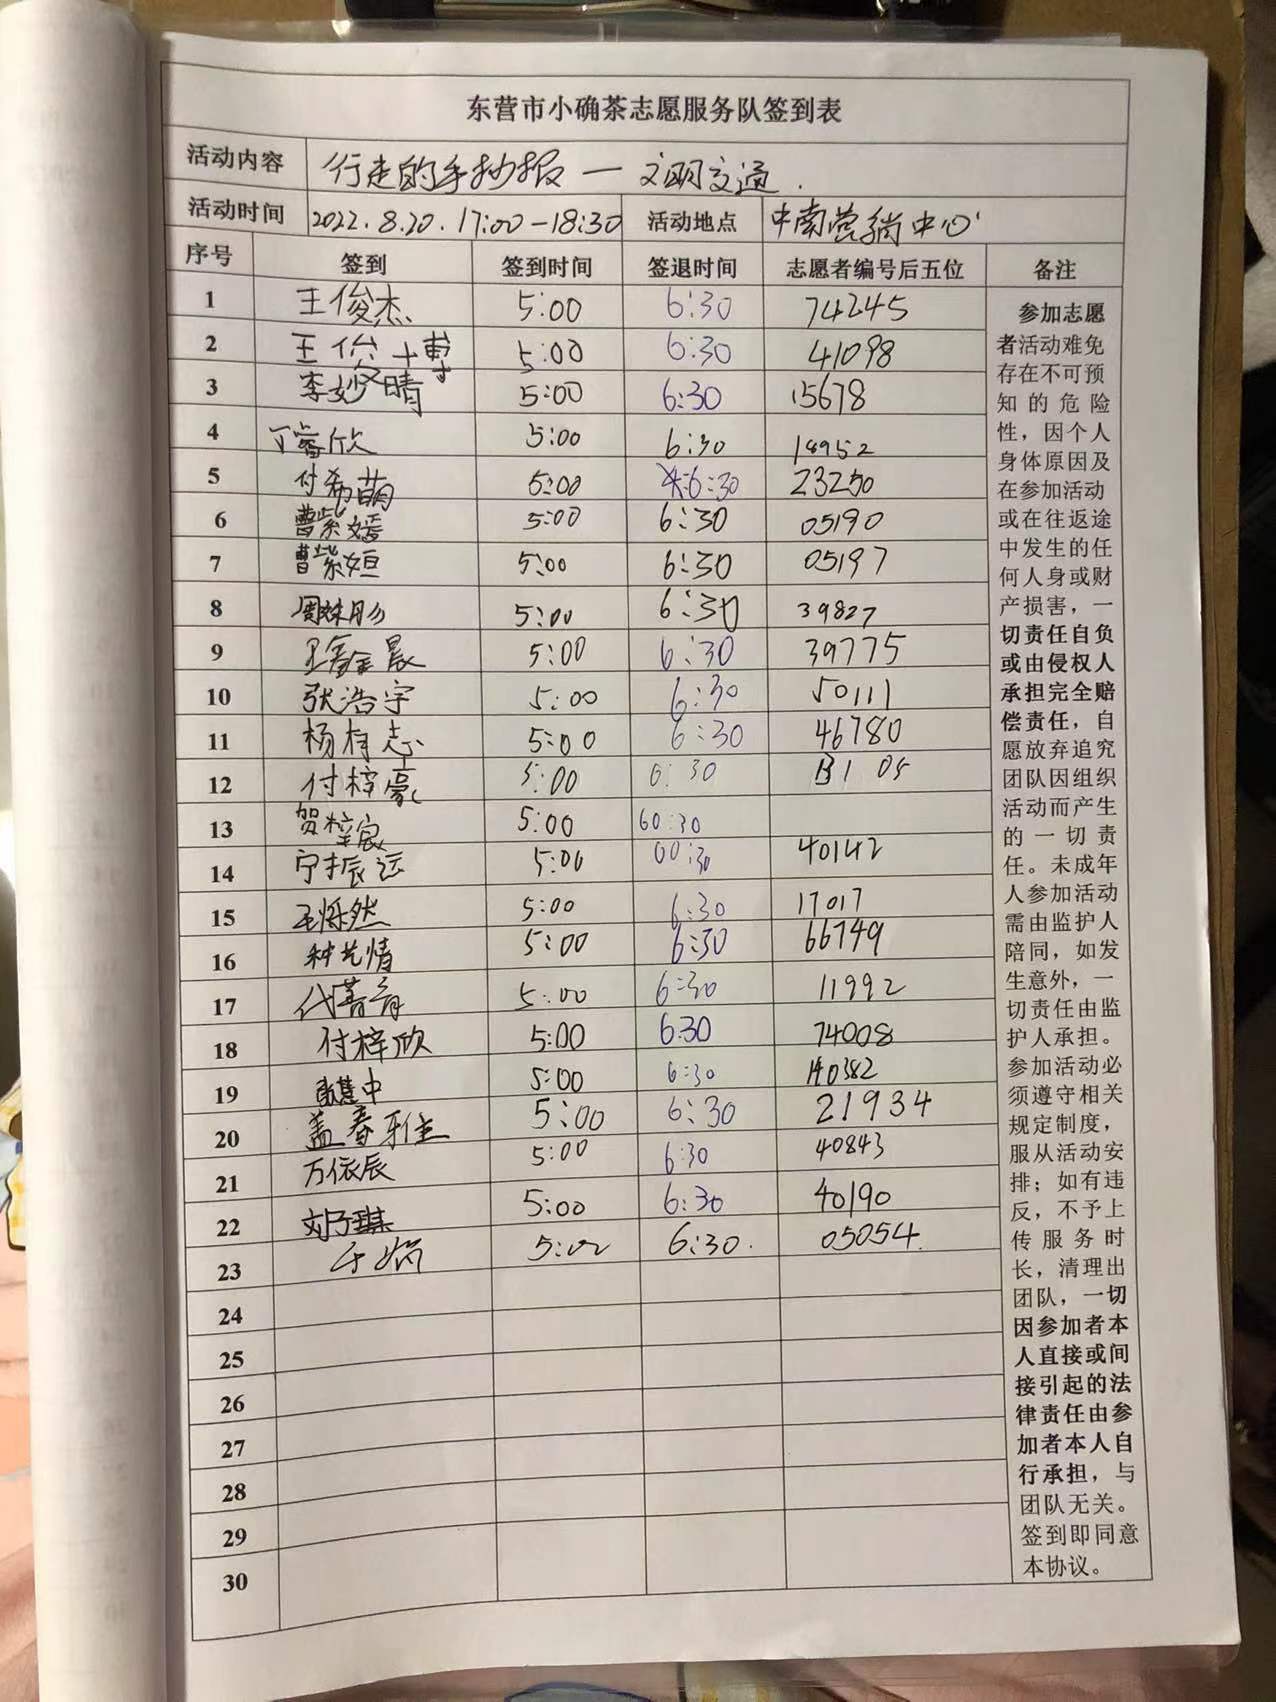 东营市小确茶志愿服务队签到表
活动内容 行走的手抄报 — 文明交通.
活动时间 2022.8.20.17:00-18:30 活动地点 中南营销中心
序号 签到 签到时间 签退时间 志愿者编号后五位 备注
1 王俊杰 5:00 6:30 74245
2 王俊博 5:00 6:30 41098
3 李妙晴 5:00 6:30 15678
4 丁睿欣 5:00 6:30 18952
5 付希萌 5:00 6:30 23250
6 曹紫媛 5:00 6:30 05190
7 曹紫姮 5:00 6:30 05197
8 5:00 6:30 39827
9 5:00 6:30 39775
10 张浩宇 5:00 6:30 50111
11 杨梓志 5:00 6:30 46780
12 付梓豪 5:00 6:30
13 贺梓宸 5:00 60:30
14 宁振远 5:00 00:30 40142
15 王烁然 5:00 6:30 17017
16 种艺情 5:00 6:30 66749
17 代菁菁 5:00 6:30 11992
18 付梓欣 5:00 6:30 74008
19 5:00 6:30 40382
20 盖春雅 5:00 6:30 21934
21 万依辰 5:00 6:30 40843
22 刘子琪 5:00 6:30 40190
23 5:00 6:30. 05054.
24
25
26
27
28
29
30
参加志愿
者活动难免
存在不可预
知的危险
性，因个人
身体原因及
在参加活动
或在往返途
中发生的任
何人身或财
产损害，一
切责任自负
或由侵权人
承担完全赔
偿责任，自
愿放弃追究
团队因组织
活动而产生
的一切责
任。未成年
人参加活动
需由监护人
陪同，如发
生意外，一
切责任由监
护人承担。
参加活动必
须遵守相关
规定制度，
服从活动安
排；如有违
反，不予上
传服务时
长，清理出
团队，一切
因参加者本
人直接或间
接引起的法
律责任由参
加者本人自
行承担，与
团队无关。
签到即同意
本协议。